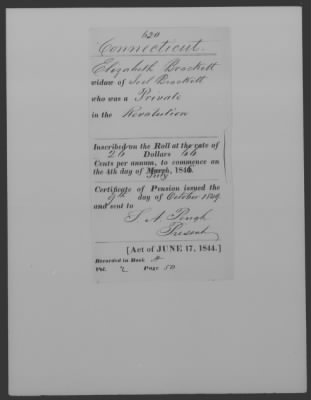 620
Connecticut.
Elizabeth Brockett
widow of Joel Brockett
who was a Private
in the Revolution
Inscribed on the Roll at the rate of
26 Dollars 66
Cents per annum, to commence on
the 4th day of March, 184
July
Certificate of Pension issued the
9th day of October 1849
and sent to
S. A. Pough
Present
[Act of JUNE 17, 1844.]
Recorded in Book A
Vol. 2 Page 50